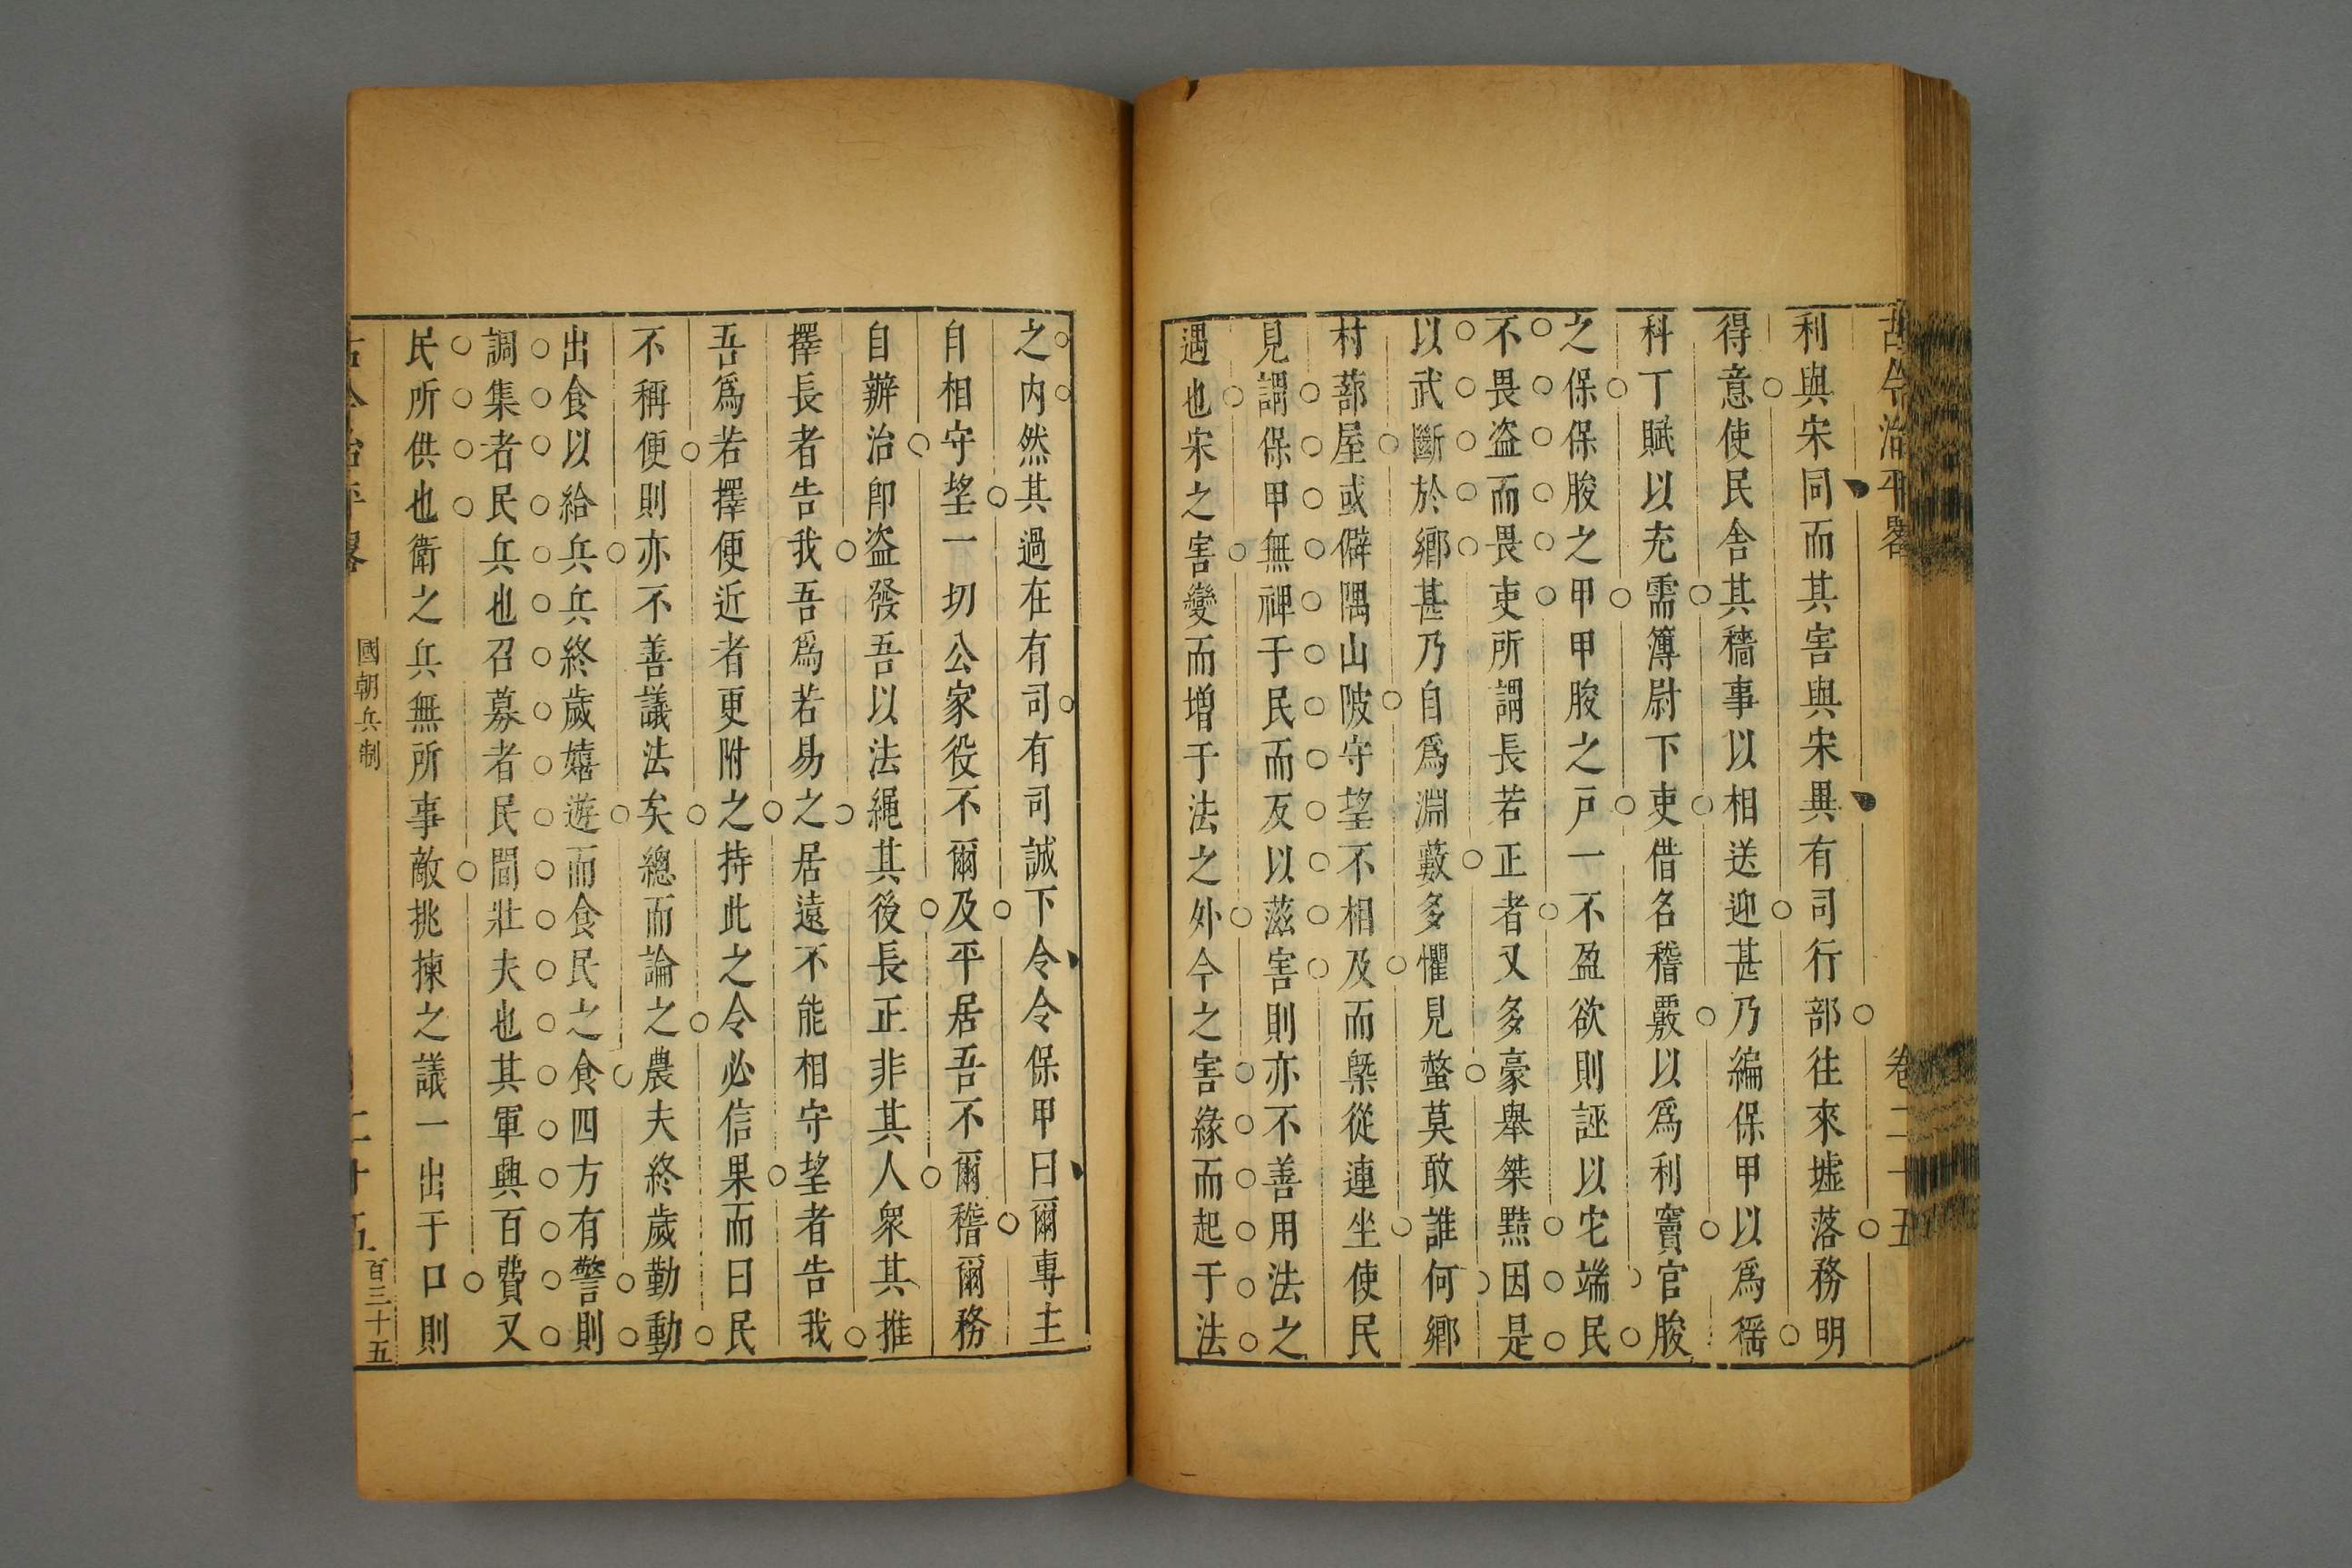 古今治平畧 卷二十五
利與宋同而其害與宋異有司行部往來墟落務明
得意使民舎其穡事以相送迎甚乃編保甲以爲徭
科丁賦以充需簿尉下吏借名稽覈以爲利竇官朘
之保保朘之甲甲朘之戸一不盈欲則誣以宅端民
不畏盗而畏吏所謂長若正者又多豪舉桀黠因是
以武斷於鄉甚乃自爲淵藪多懼見螫莫敢誰何鄉
村蔀屋或僻隅山陂守望不相及而槩從連坐使民
見謂保甲無裨于民而反以滋害則亦不善用法之
過也宋之害變而增于法之外今之害緣而起于法
之内然其過在有司有司誠下令令保甲曰爾專主
自相守望一切公家役不爾及平居吾不爾稽爾務
自辦治卽盗發吾以法繩其後長正非其人衆其推
擇長者告我吾爲若易之居遠不能相守望者告我
吾爲若擇便近者更附之持此之令必信果而曰民
不稱便則亦不善議法矣總而論之農夫終歲勤動
出食以給兵兵終歲嬉遊而食民之食四方有警則
調集者民兵也召募者民間壯夫也其軍興百費又
民所供也衛之兵無所事敵挑揀之議一出于口則
古今治平畧 國朝兵制 二十五 百三十五